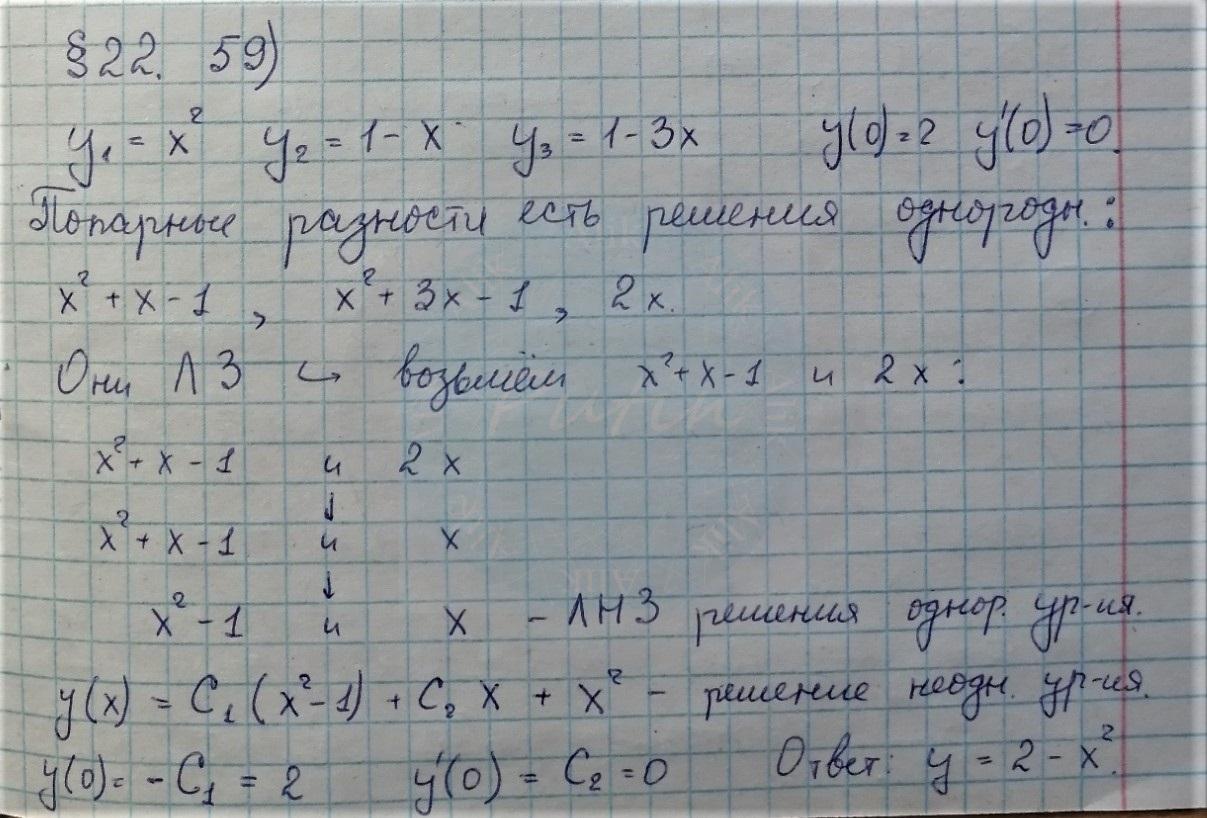 §22. 59)
y₁ = x² y₂ = 1 - x y₃ = 1 - 3x y(0) = 2 y'(0) = 0.
Попарные разности есть решения однородн.:
x² + x - 1, x² + 3x - 1, 2x.
Они ЛЗ ↪ возьмём x² + x - 1 и 2x:
x² + x - 1 и 2x
↓
x² + x - 1 и x
↓
x² - 1 и x - ЛНЗ решения однор. ур-ия.
y(x) = C₁(x² - 1) + C₂ x + x² - решение неодн. ур-ия.
y(0) = - C₁ = 2 y'(0) = C₂ = 0 Ответ: y = 2 - x².